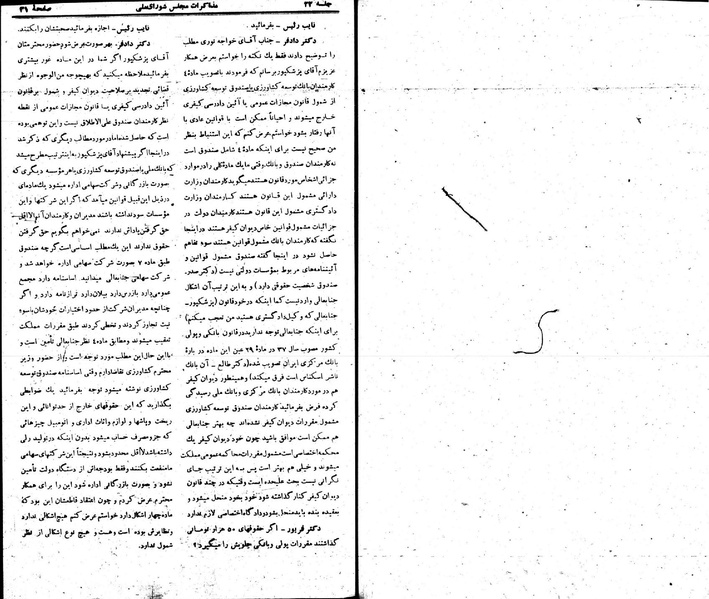 صفحهٔ ۳۱
مذاکرات مجلس شورایملی
جلسه ۲۲
نایب رئیس - بفرمائید.
دکتر دادفر - جناب آقای خواجه نوری مطلب
را توضیح دادند فقط یك نکته را خواستم بعرض همکار
عزیزم آقای پزشکپور برسانم که فرمودند باتصویب ماده ٤
کارمندان بانك توسعه کشاورزی یا صندوق توسعه کشاورزی
از شمول قانون مجازات عمومی یا آئین دادرسی کیفری
خارج میشوند و احیاناً ممکن است با قوانین عادی با
آنها رفتار بشود خواستم عرض کنم که این استنباط بنظر
من صحیح نیست برای اینکه ماده ٤ شامل صندوق است
نه کارمندان صندوق وقتی ما یك ماده کلی را در موارد
جزائی اشخاص مورد قانون هستند میگوید کارمندان وزارت
دارائی مشمول این قانون هستند کارمندان وزارت
دادگستری مشمول این قانون هستند کارمندان دولت در
جزائیات مشمول قوانین خاص دیوان کیفر هستند در اینجا
نگفته که کارمندان بانك مشمول قوانین هستند سوء تفاهم
حاصل نشود در اینجا گفته صندوق مشمول قوانین و
آئیننامه‌های مربوط بمؤسسات دولتی نیست (دکتر صدر-
صندوق شخصیت حقوقی دارد) و به این ترتیب آن اشکال
جنابعالی وارد نیست کما اینکه در خود قانون (پزشکپور-
جنابعالی که وکیل دادگستری هستید من تعجب میکنم)
برای اینکه جنابعالی توجه ندارید در قانون بانکی و پولی
کشور مصوب سال ۳۷ در مادهٔ ۲۹ عین این ماده در بارهٔ
بانك مرکزی ایران تصویب شده (دکتر طالع - آن بانك
ناشر اسکناس است فرق میکند) و همینطور دیوان کیفر
هم در مورد کارمندان بانك مرکزی و بانك ملی رسیدگی
کرده فرض بفرمائید کارمندان صندوق توسعه کشاورزی
مشمول مقررات دیوان کیفر نشده‌اند چه بهتر جنابعالی
هم ممکن است موافق باشید چون خود دیوان کیفر یك
محکمه اختصاصی است مشمول مقررات محاکم عمومی مملکت
میشوند و خیلی هم بهتر است پس به این ترتیب جای
نگرانی نیست بحث علیحده ایست وقتیکه در چند قانون
دیوان کیفر کنار گذاشته شود خود بخود منحل میشود و
بعقیده بنده باید منحل بشود و دادگاه اختصاصی لازم ندارد
دکتر فرپور - اگر حقوقهای ۵۰ هزار تومانی
گذاشتند مقررات پولی و بانکی جلویش را میگیرد؟
نایب رئیس - اجازه بفرمائید صحبتشان را بکنند.
دکتر دادفر - بهر صورت عرض شود حضور محترمتان
آقای پزشکپور اگر شما در این ماده غور بیشتری
بفرمائید ملاحظه میکنید که بهیچوجه من الوجوه از نظر
قضائی تجدیدی بر صلاحیت دیوان کیفر و شمول بر قانون
آئین دادرسی کیفری یا قانون مجازات عمومی از نقطه
نظر کارمندان صندوق علی الاطلاق نیست و این توهمی بوده
است که حاصل شد اما در مورد مطالب دیگری که ذکر شد
در اینجا اگر پیشنهاد آقای پزشکپور به اینترتیب مطرح میشد
که بانك ملی یا صندوق توسعه کشاورزی یا هر مؤسسه دیگری که
بصورت بازرگانی و شرکت سهامی اداره میشود یك ماده‌ای
در ذیل این قبیل قوانین میآمد که اگر این شرکتها و این
مؤسسات سود نداشته باشند مدیران و کارمندان آنها لااقل
حق گرفتن پاداش ندارند نمی‌خواهم بگویم حق گرفتن
حقوق ندارند این یك مطلب اساسی است گرچه صندوق
طبق ماده ۷ بصورت شرکت سهامی اداره خواهد شد و
شرکت سهامی جنابعالی میدانید اساسنامه دارد مجمع
عمومی دارد بازرس دارد بیلان دارد ترازنامه دارد و اگر
چنانچه مدیران شرکت از حدود اختیارات خودشان با سوء
نیت تجاوز کردند و تخطی کردند طبق مقررات مملکت
تعقیب میشوند ومطابق ماده ٤ نظر جنابعالی تأمین است و
با این حال این مطلب مورد توجه است و از حضور وزیر
محترم کشاورزی تقاضا دارم وقتی اساسنامه صندوق توسعه
کشاورزی نوشته میشود توجه بفرمائید یك ضوابطی
بگذارید که این حقوقهای خارج از حد توانائی و این
ریخت و پاشها و لوازم و اثاث اداری و اتومبیل چیزهائی
که جزو مصرف حساب میشود بدون اینکه در تولید رلی
داشته باشد لااقل محدود بشود و نتیجتاً این شرکتهای سهامی
ما منفعت بکنند و فقط بودجه‌اش از دستگاه دولت تأمین
نشود و بصورت بازرگانی اداره شود این را برای همکار
محترم عرض کردم و چون اعتقاد قاطعشان این بود که
ماده چهار اشکال دارد خواستم عرض کنم هیچ اشکالی ندارد
و نظایرش بوده است و هست و هیچ نوع اشکالی از نظر
شمول ندارد.